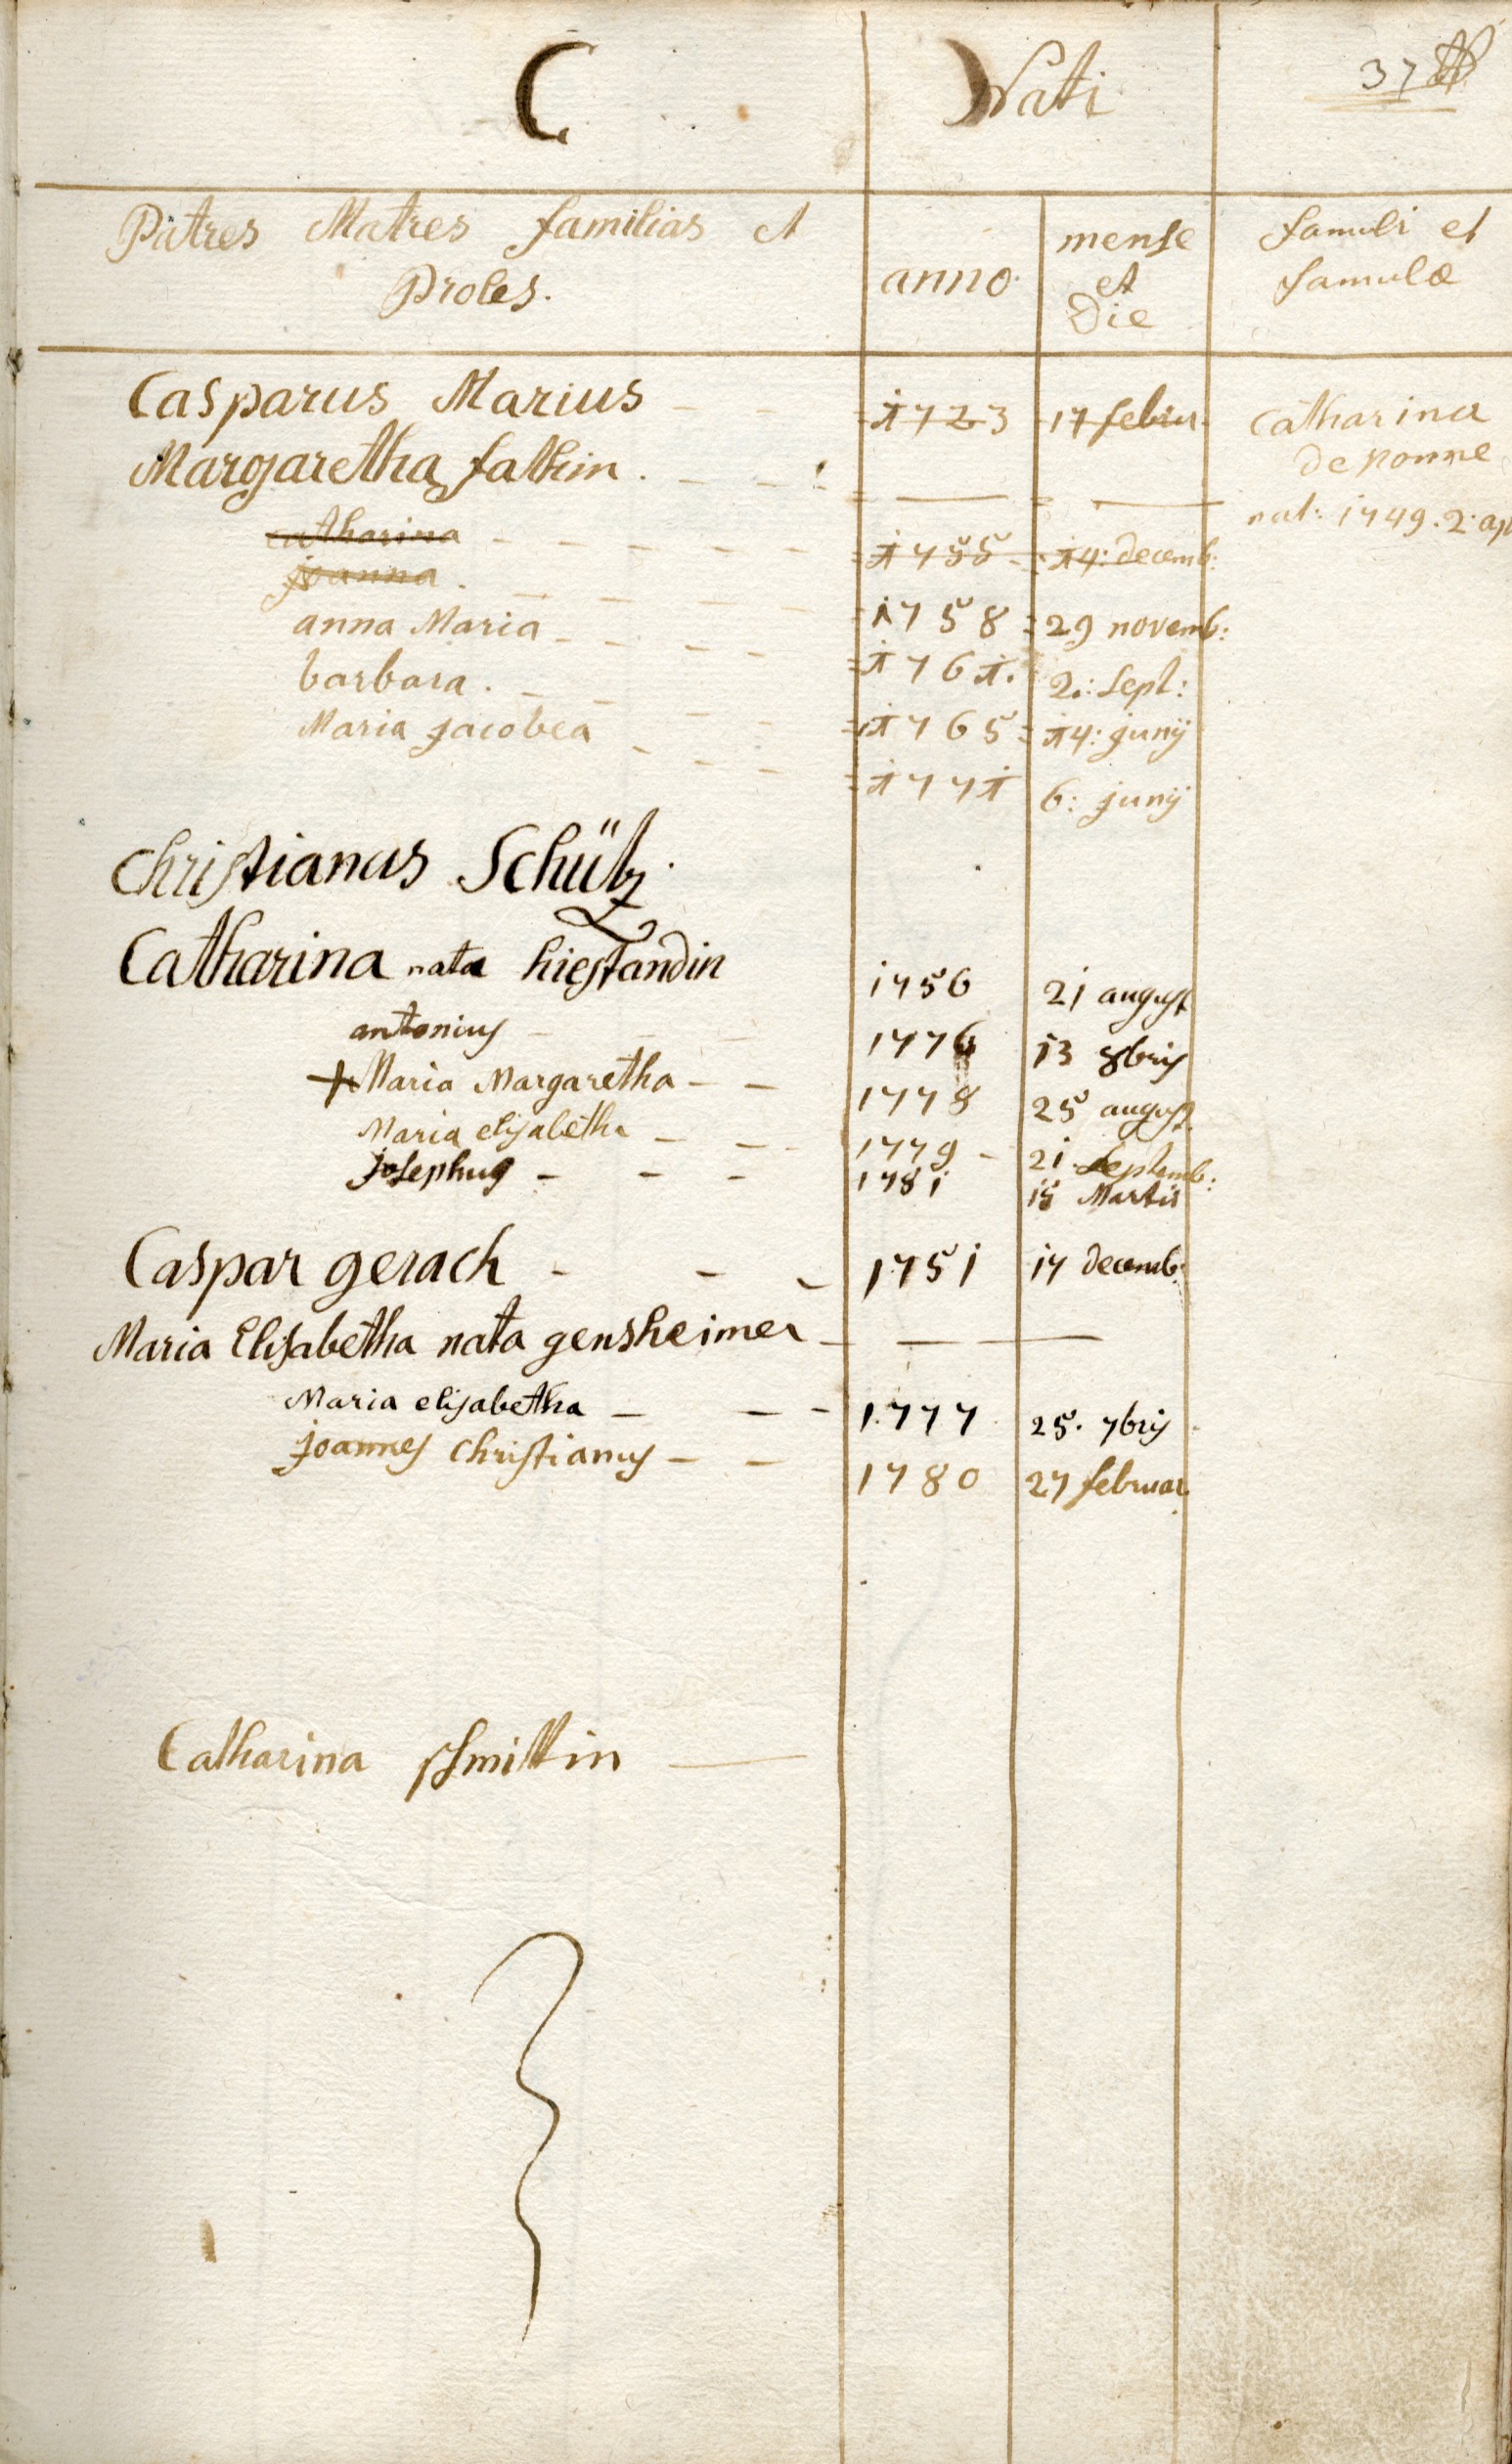 C Nati 37
Patres Matres familias et
Proles.
anno
mense
et
Die
famuli et
famulæ
Casparus Marius 1723 17 febru.
Margaretha fathin.
Catharina
de nonne
nat: 1749. 2. ap
catharina 1755 14: decemb:
joanna. 1758 29 novemb:
anna Maria 1761. 2.: Sept:
barbara. 1765 14: junij
Maria jacobea 1771 6: junij
Christianus Schütz.
Catharina nata hiestandin 1756 21 august
antonius 1776 13 8bris
Maria Margaretha 1778 25 august.
Maria elisabetha 1779 21 Septemb:
josephus 1781 15 Martii
Caspar gerach 1751 17 decemb:
Maria Elisabetha nata gensheimer
Maria elisabetha 1777 25. 7bris
joannes Christianus 1780 27 februar.
Catharina schmittin